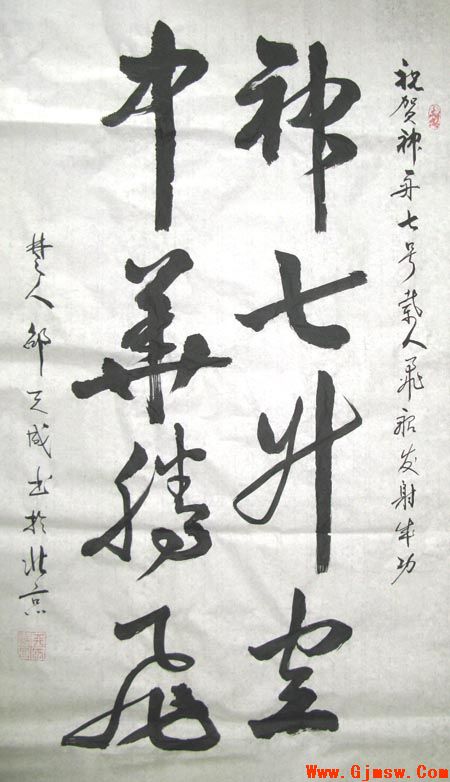 祝贺神舟七号载人飞船发射成功
神七升空
中华腾飞
楚人邹天成书于北京
Www.Gjmsw.Com